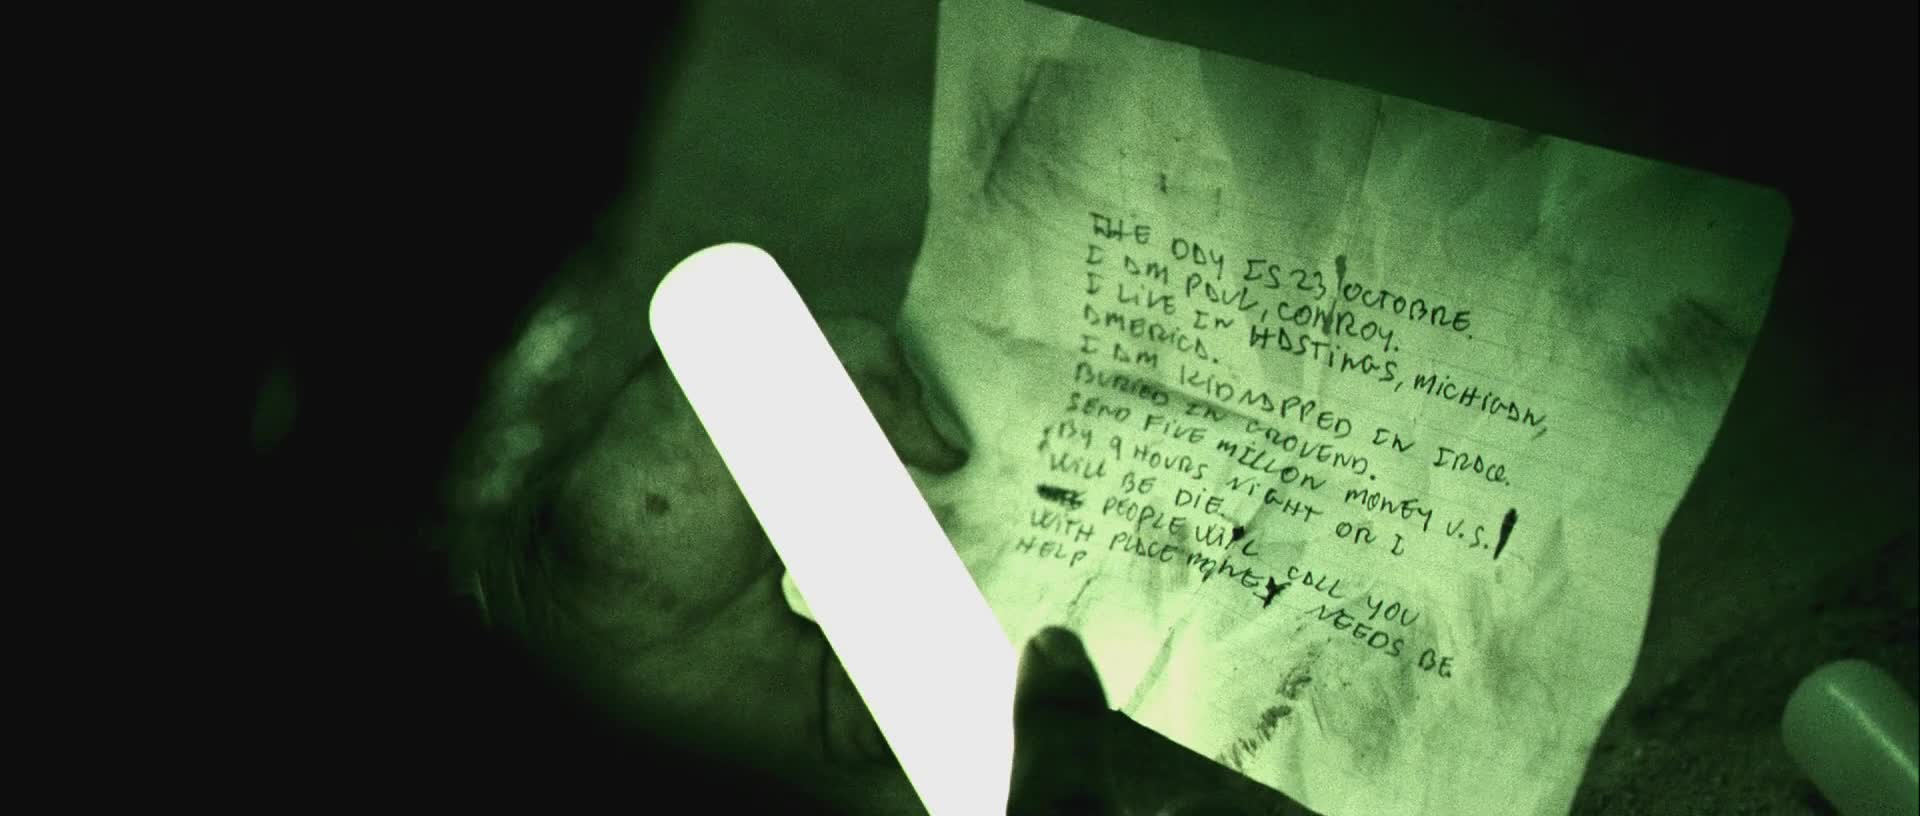 THE DAY IS 23, OCTOBRE.
I AM PAUL, CONROY.
I LIVE IN HASTINGS, MICHIGAN,
AMERICA.
I AM KIDNAPPED IN IRAQ.
BURIED IN GROVEND.
SEND FIVE MILLON MONEY U.S.
BY 9 HOURS NIGHT OR I
WILL BE DIE.
PEOPLE WILL CALL YOU
WITH PLACE MONEY NEEDS BE
HELP